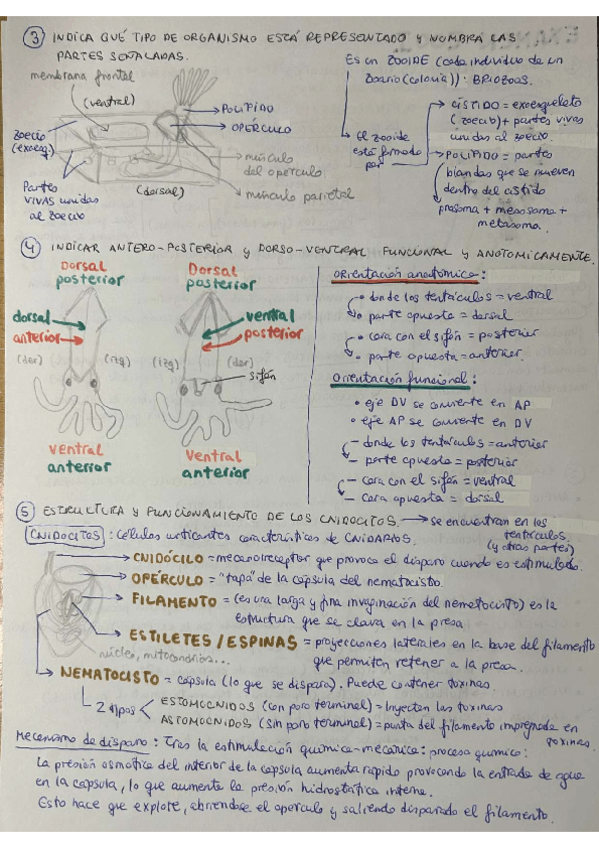 ③ INDICA QUÉ TIPO DE ORGANISMO ESTÁ REPRESENTADO Y NOMBRA LAS
PARTES SEÑALADAS.
membrana frontal
(ventral)
POLÍPIDO
OPÉRCULO
zoecio
(exoesq)
músculo
del opérculo
músculo parietal
Partes
VIVAS unidas
al zoecio
(dorsal)
Es un ZOOIDE (cada individuo de un
zoario (colonia)): BRIOZOOS.
El zooide
está formado
por
CISTIDO = exoesqueleto
(zoecio) + partes vivas
unidas al zoecio.
POLÍPIDO = partes
blandas que se mueven
dentro del cistido
prosoma + mesosoma +
metasoma.
④ INDICAR ANTERO-POSTERIOR Y DORSO-VENTRAL FUNCIONAL Y ANATOMICAMENTE.
Dorsal
posterior
dorsal
anterior
(der)
(izq)
ventral
anterior
Dorsal
posterior
ventral
posterior
(izq)
(der)
sifón
Ventral
anterior
Orientación anatómica:
donde los tentáculos = ventral
parte opuesta = dorsal
cara con el sifón = posterior
parte opuesta = anterior.
Orientación funcional:
• eje DV se convierte en AP
• eje AP se convierte en DV
donde los tentáculos = anterior
parte opuesta = posterior
cara con el sifón = ventral
cara opuesta = dorsal
⑤ ESTRUCTURA Y FUNCIONAMIENTO DE LOS CNIDOCITOS. → se encuentran en los
tentáculos.
(y otras partes)
CNIDOCITOS: Células urticantes características de CNIDARIOS.
CNIDÓCILO = mecanorreceptor que provoca el disparo cuando es estimulado.
OPÉRCULO = "tapa" de la cápsula del nematocisto.
FILAMENTO = (es una larga y fina invaginación del nematocisto) es la
estructura que se clava en la presa
ESTILETES / ESPINAS = proyecciones laterales en la base del filamento
que permiten retener a la presa.
núcleo, mitocondrias...
NEMATOCISTO = cápsula (lo que se dispara). Puede contener toxinas
2 tipos
ESTOMOCNIDOS (con poro terminal) = Inyectan las toxinas
ASTOMOCNIDOS (sin poro terminal) = punta del filamento impregnada en
toxinas.
Mecanismo de disparo: Tras la estimulación química-mecánica: proceso químico:
La presión osmótica del interior de la cápsula aumenta rápido provocando la entrada de agua
en la cápsula, lo que aumenta la presión hidrostática interna.
Esto hace que explote, abriéndose el opérculo y saliendo disparado el filamento.